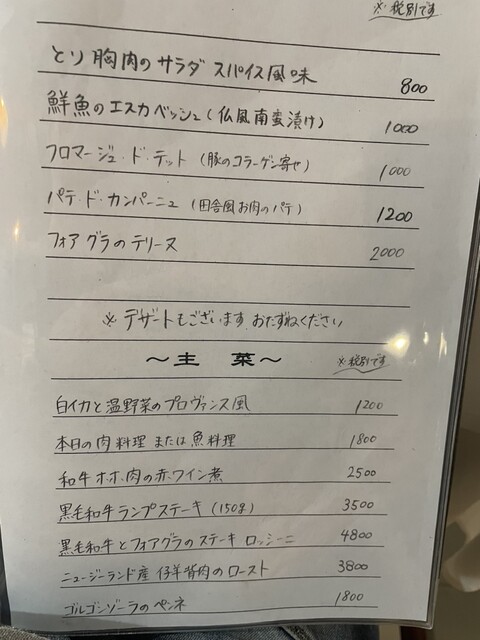 ※税別です
とり胸肉のサラダ スパイス風味 800
鮮魚のエスカベッシュ(仏風南蛮漬け) 1000
フロマージュ・ド・テット (豚のコラーゲン寄せ) 1000
パテ・ド・カンパーニュ (田舎風お肉のパテ) 1200
フォアグラのテリーヌ 2000
※デザートもございます おたずねください
～主 菜～ ※税別です
白イカと温野菜のプロヴァンス風 1200
本日の肉料理 または魚料理 1800
和牛ホホ肉の赤ワイン煮 2500
黒毛和牛ランプステーキ (150g) 3500
黒毛和牛とフォアグラのステーキ ロッシーニ 4800
ニュージーランド産 仔羊背肉のロースト 3800
ゴルゴンゾーラのペンネ 1800